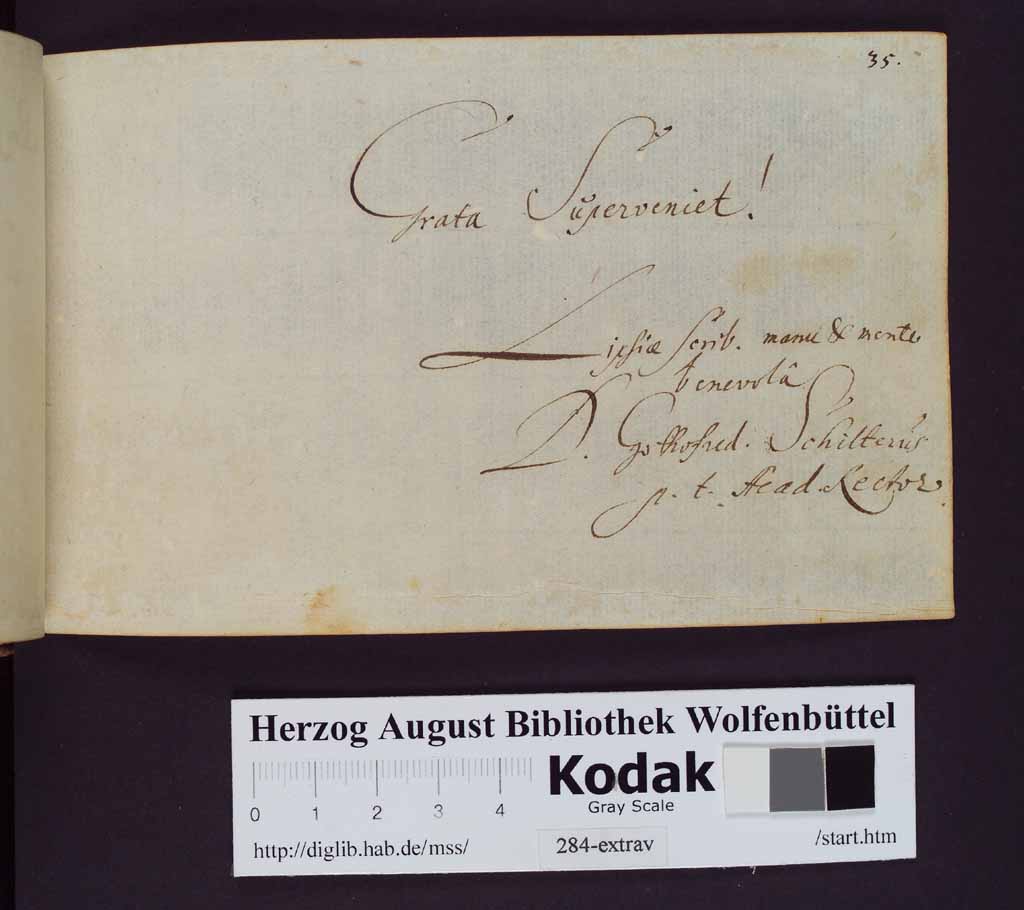 35.
Grata Superveniet!
Lipsiæ Scrib. manu & mente
benevolâ
D. Gottofred. Schilterus
p. t. Acad. Rector.
Herzog August Bibliothek Wolfenbüttel
Kodak
Gray Scale
0 1 2 3 4
http://diglib.hab.de/mss/
284-extrav
/start.htm